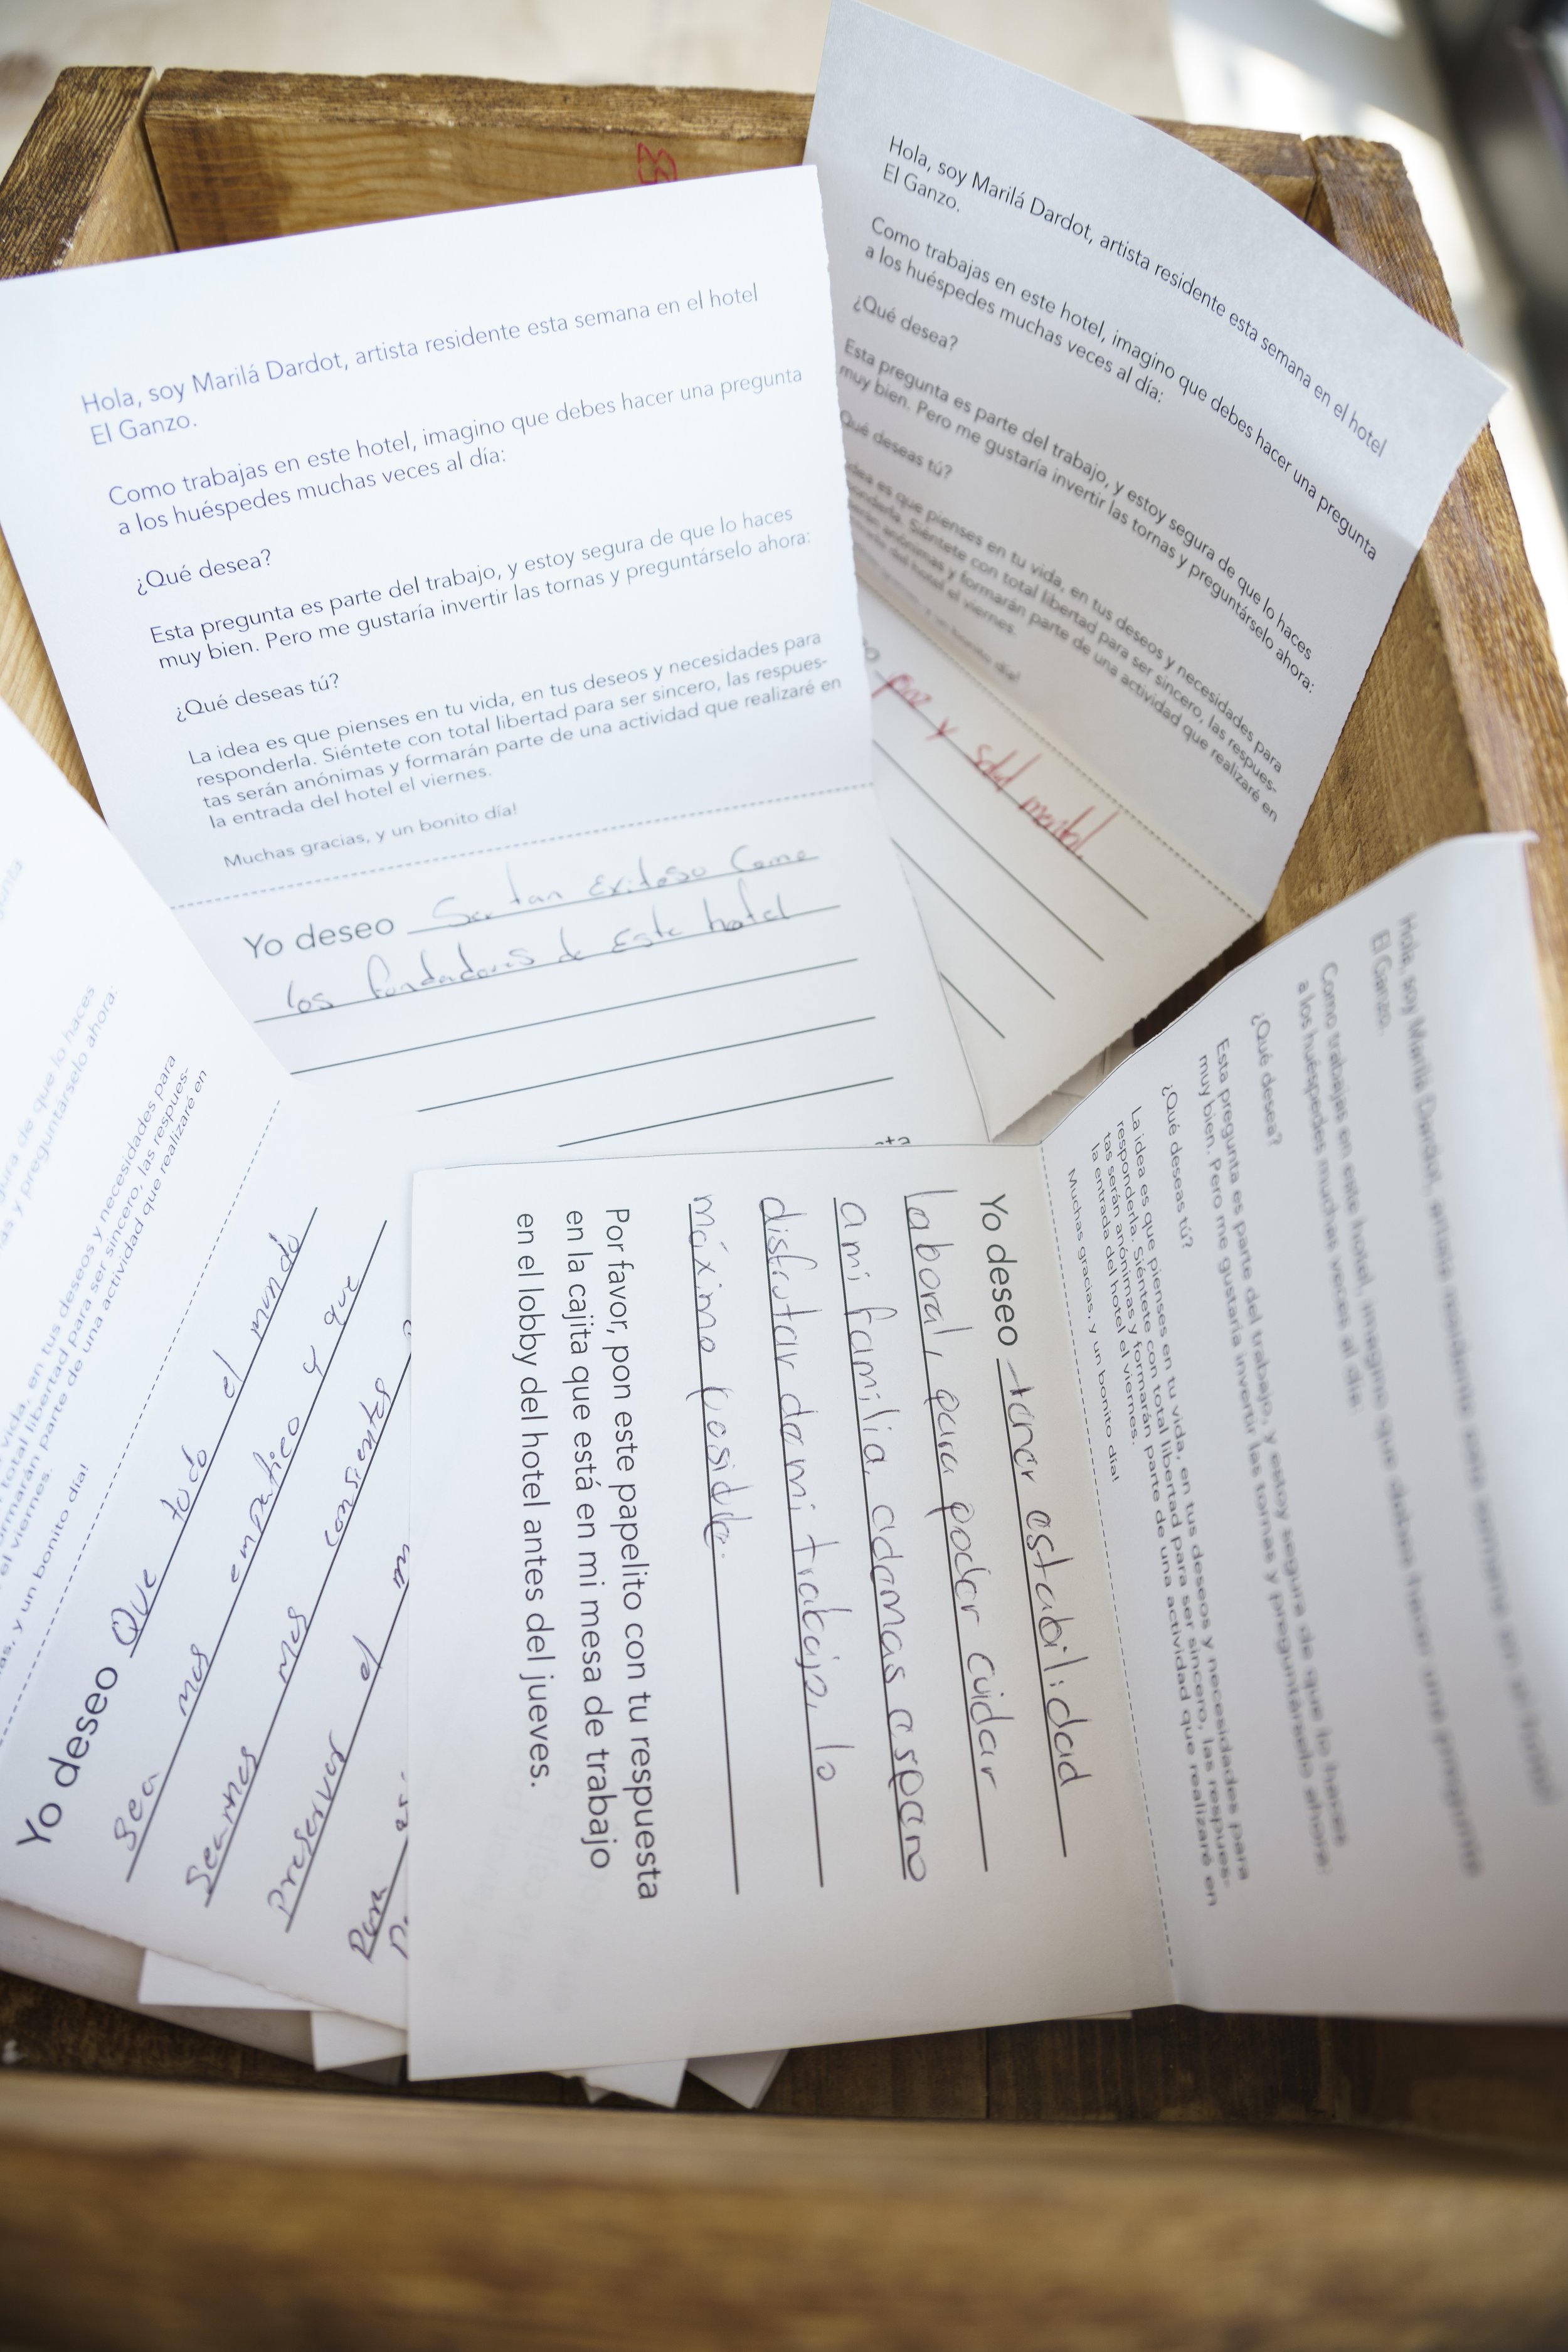 Hola, soy Marilá Dardot, artista residente esta semana en el hotel
El Ganzo.
Como trabajas en este hotel, imagino que debes hacer una pregunta
a los huéspedes muchas veces al día:
¿Qué desea?
Esta pregunta es parte del trabajo, y estoy segura de que lo haces
muy bien. Pero me gustaría invertir las tornas y preguntárselo ahora:
¿Qué deseas tú?
La idea es que pienses en tu vida, en tus deseos y necesidades para
responderla. Siéntete con total libertad para ser sincero, las respues-
tas serán anónimas y formarán parte de una actividad que realizaré en
la entrada del hotel el viernes.
Muchas gracias, y un bonito día!
Yo deseo Ser tan exitoso Como
los fundadores de Este hotel
Hola, soy Marilá Dardot, artista residente esta semana en el hotel
El Ganzo.
Como trabajas en este hotel, imagino que debes hacer una pregunta
a los huéspedes muchas veces al día:
¿Qué desea?
Esta pregunta es parte del trabajo, y estoy segura de que lo haces
muy bien. Pero me gustaría invertir las tornas y preguntárselo ahora:
Qué deseas tú?
idea es que pienses en tu vida, en tus deseos y necesidades para
Siéntete con total libertad para ser sincero, las respues-
anónimas y formarán parte de una actividad que realizaré en
del hotel el viernes.
un bonito día!
paz y salud mental
pregunta
de que lo haces
y preguntárselo ahora:
vida, en tus deseos y necesidades para
total libertad para ser sincero, las respues-
parte de una actividad que realizaré en
el viernes.
y un bonito día!
Yo deseo Que todo el mundo
Sea mas empatico y que
Seamos mas consientes
Preservar el
Para
Hola, soy Marilá Dardot, artista residente esta semana en el hotel
El Ganzo.
Como trabajas en este hotel, imagino que debes hacer una pregunta
a los huéspedes muchas veces al día:
¿Qué desea?
Esta pregunta es parte del trabajo, y estoy segura de que lo haces
muy bien. Pero me gustaría invertir las tornas y preguntárselo ahora:
¿Qué deseas tú?
La idea es que pienses en tu vida, en tus deseos y necesidades para
responderla. Siéntete con total libertad para ser sincero, las respues-
tas serán anónimas y formarán parte de una actividad que realizaré en
la entrada del hotel el viernes.
Muchas gracias, y un bonito día!
Yo deseo tener estabilidad
laboral, para poder cuidar
a mi familia, ademas espero
disfrutar de mi trabajo, lo
máximo posible.
Por favor, pon este papelito con tu respuesta
en la cajita que está en mi mesa de trabajo
en el lobby del hotel antes del jueves.